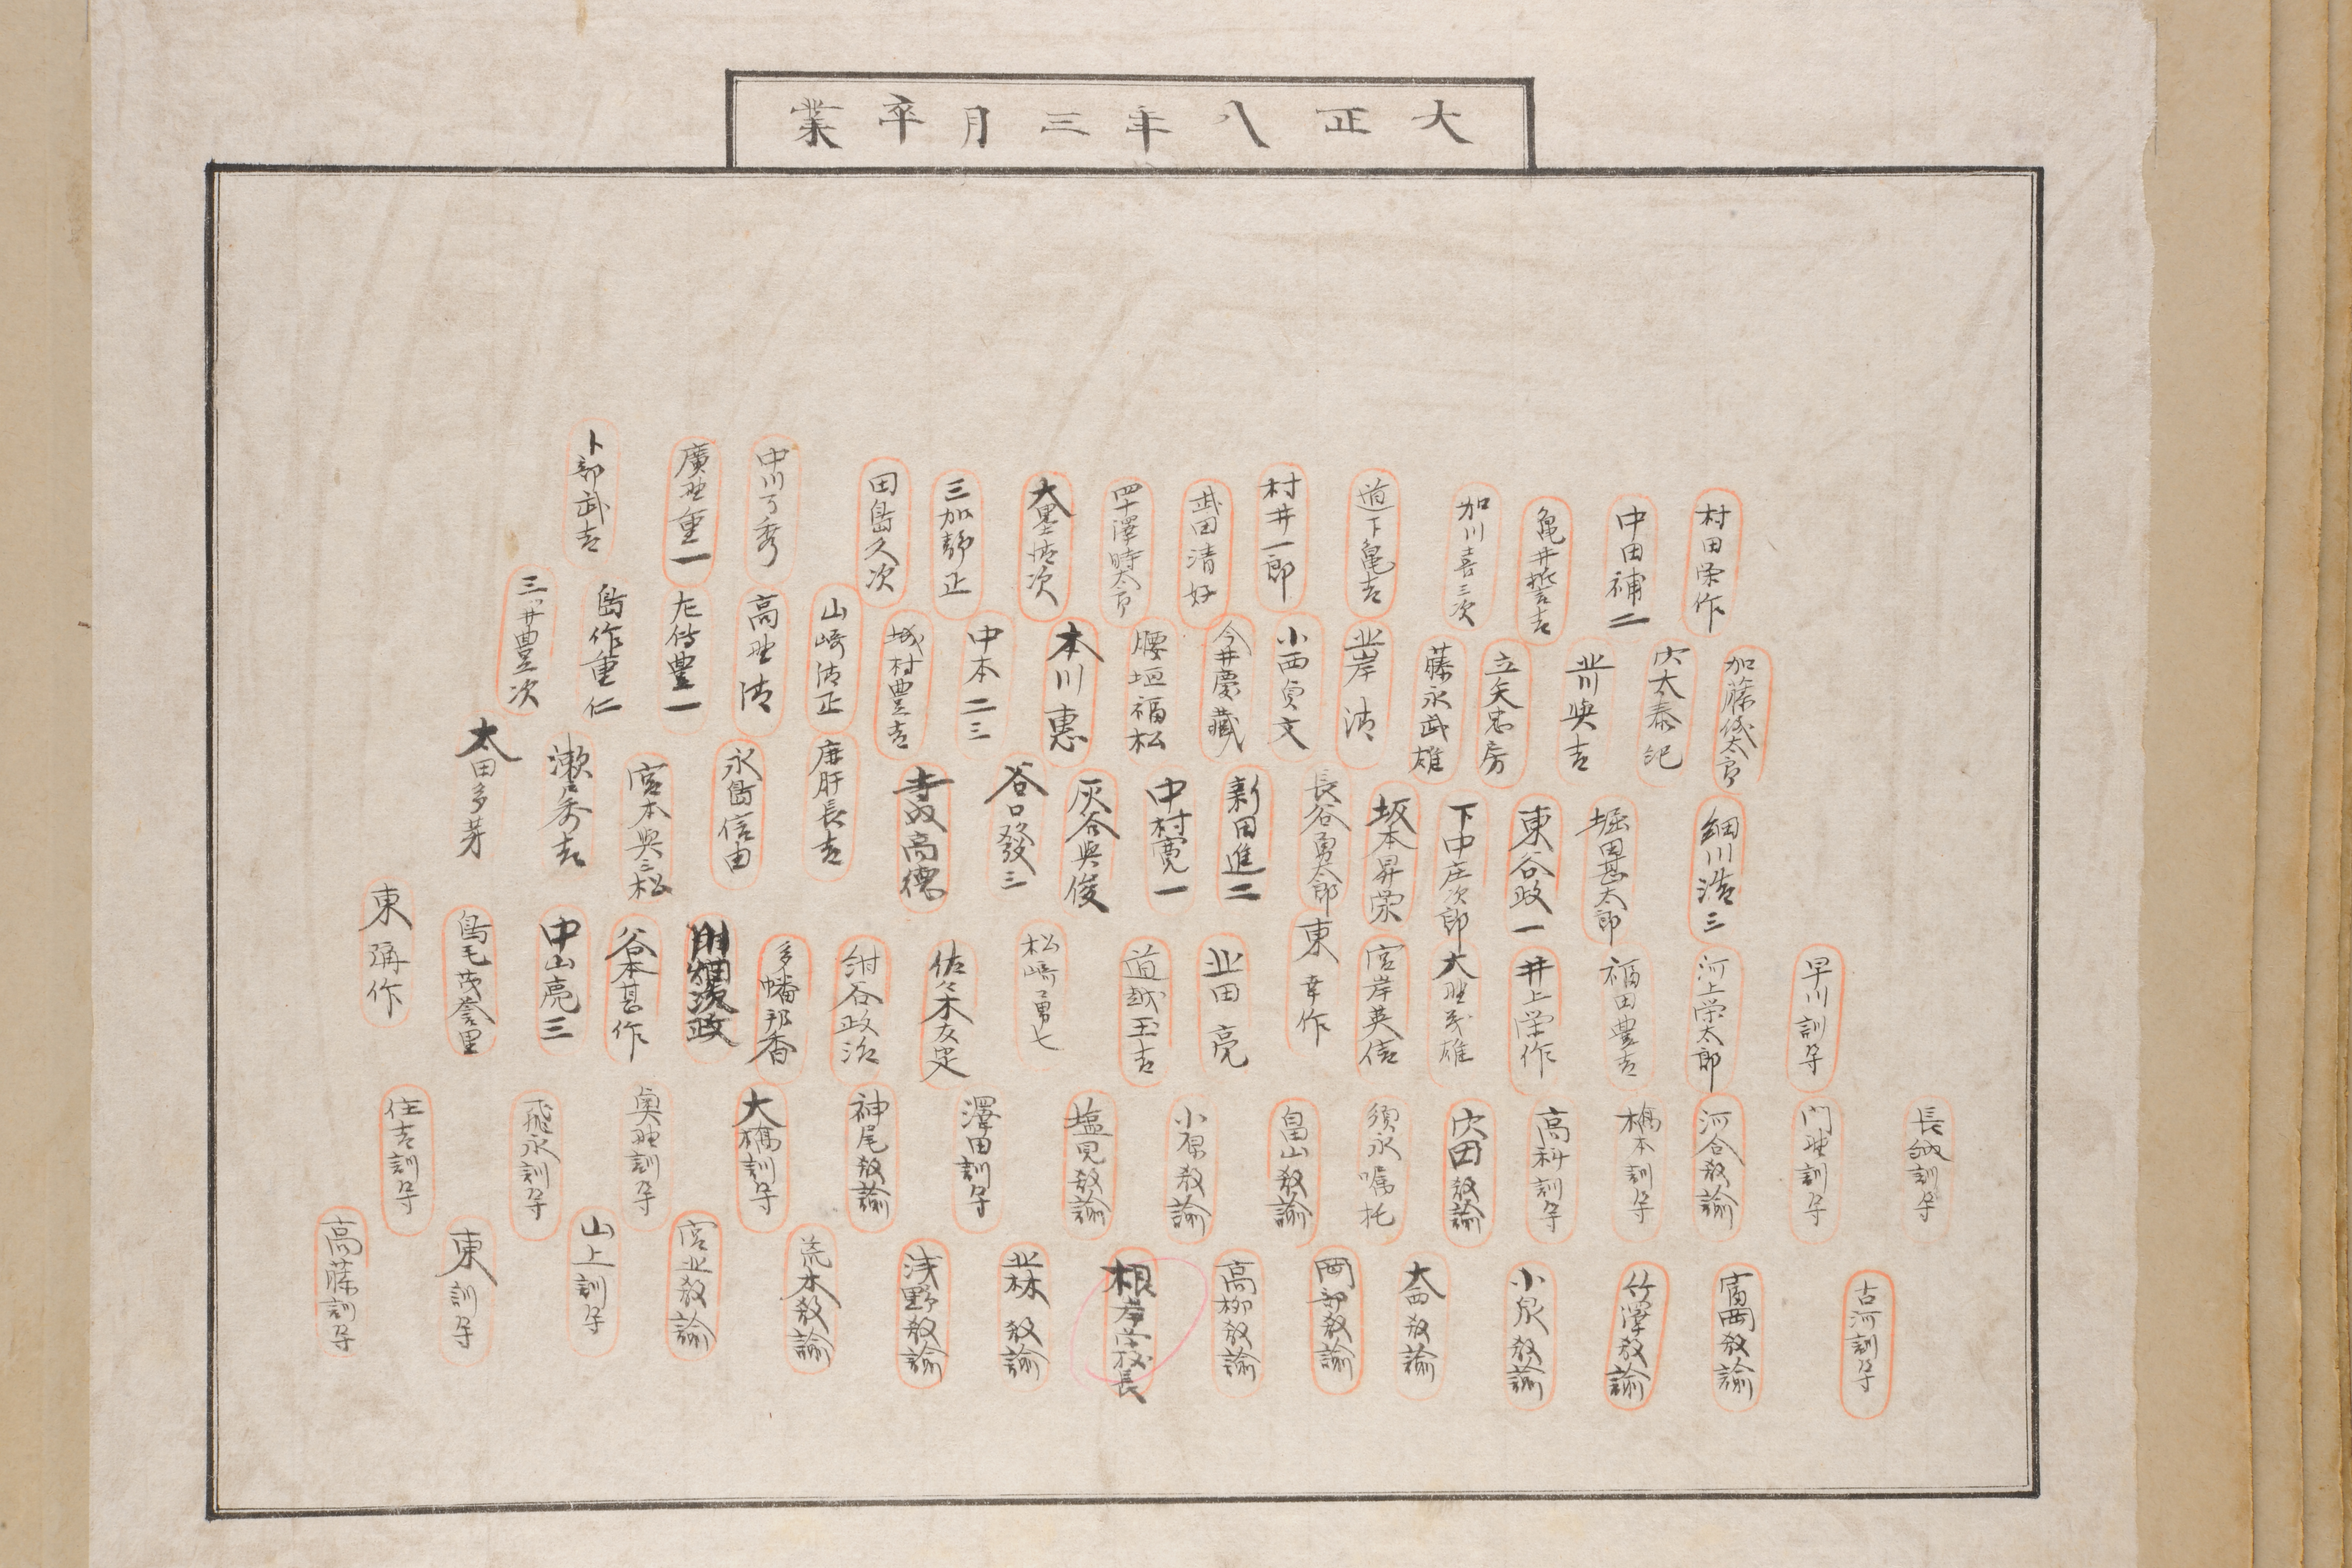 大正八年三月卒業
村田栄作
中田補二
亀井誓吉
加川喜三次
道下亀吉
村井一郎
武田清好
四十澤時太郎
大墨清次
三加静正
田島久次
中川乃秀
廣野重一
卜部武吉
加藤儀太郎
宍太泰記
北川與吉
立矢忠房
藤永武雄
北岸清
小西貞文
今井慶藏
腰垣福松
本川惠
中本二三
城村豊吉
山崎清正
高野清
左傳豊一
島作重仁
三ツ井豊次
細川浩三
堀田甚太郎
東谷政一
下中庄次郎
坂本昇栄
長谷勇太郎
新田進二
中村寛一
灰谷與俊
谷口發三
高德
長吉
永島信由
宮本與三松
瀬戸秀吉
太田多芽
早川訓導
河上栄太郎
福田豊吉
井上栄作
大野茂雄
宮岸英信
東幸作
北田亮
道越玉吉
松崎勇七
佐々木友定
紺谷政治
多幡邦香
政
谷本甚作
中山亮三
鳥毛茂登里
東彌作
長納訓導
門野訓導
河合教諭
橋本訓導
高科訓導
宍田教諭
須永嘱托
畠山教諭
小原教諭
塩見教諭
澤田訓導
神尾教諭
大橋訓導
奥野訓導
飛永訓導
住吉訓導
古河訓導
富岡教諭
竹澤教諭
小泉教諭
大西教諭
岡部教諭
高柳教諭
根岸学校長
北林教諭
浅野教諭
荒木教諭
宮北教諭
山上訓導
東訓導
高藤訓導